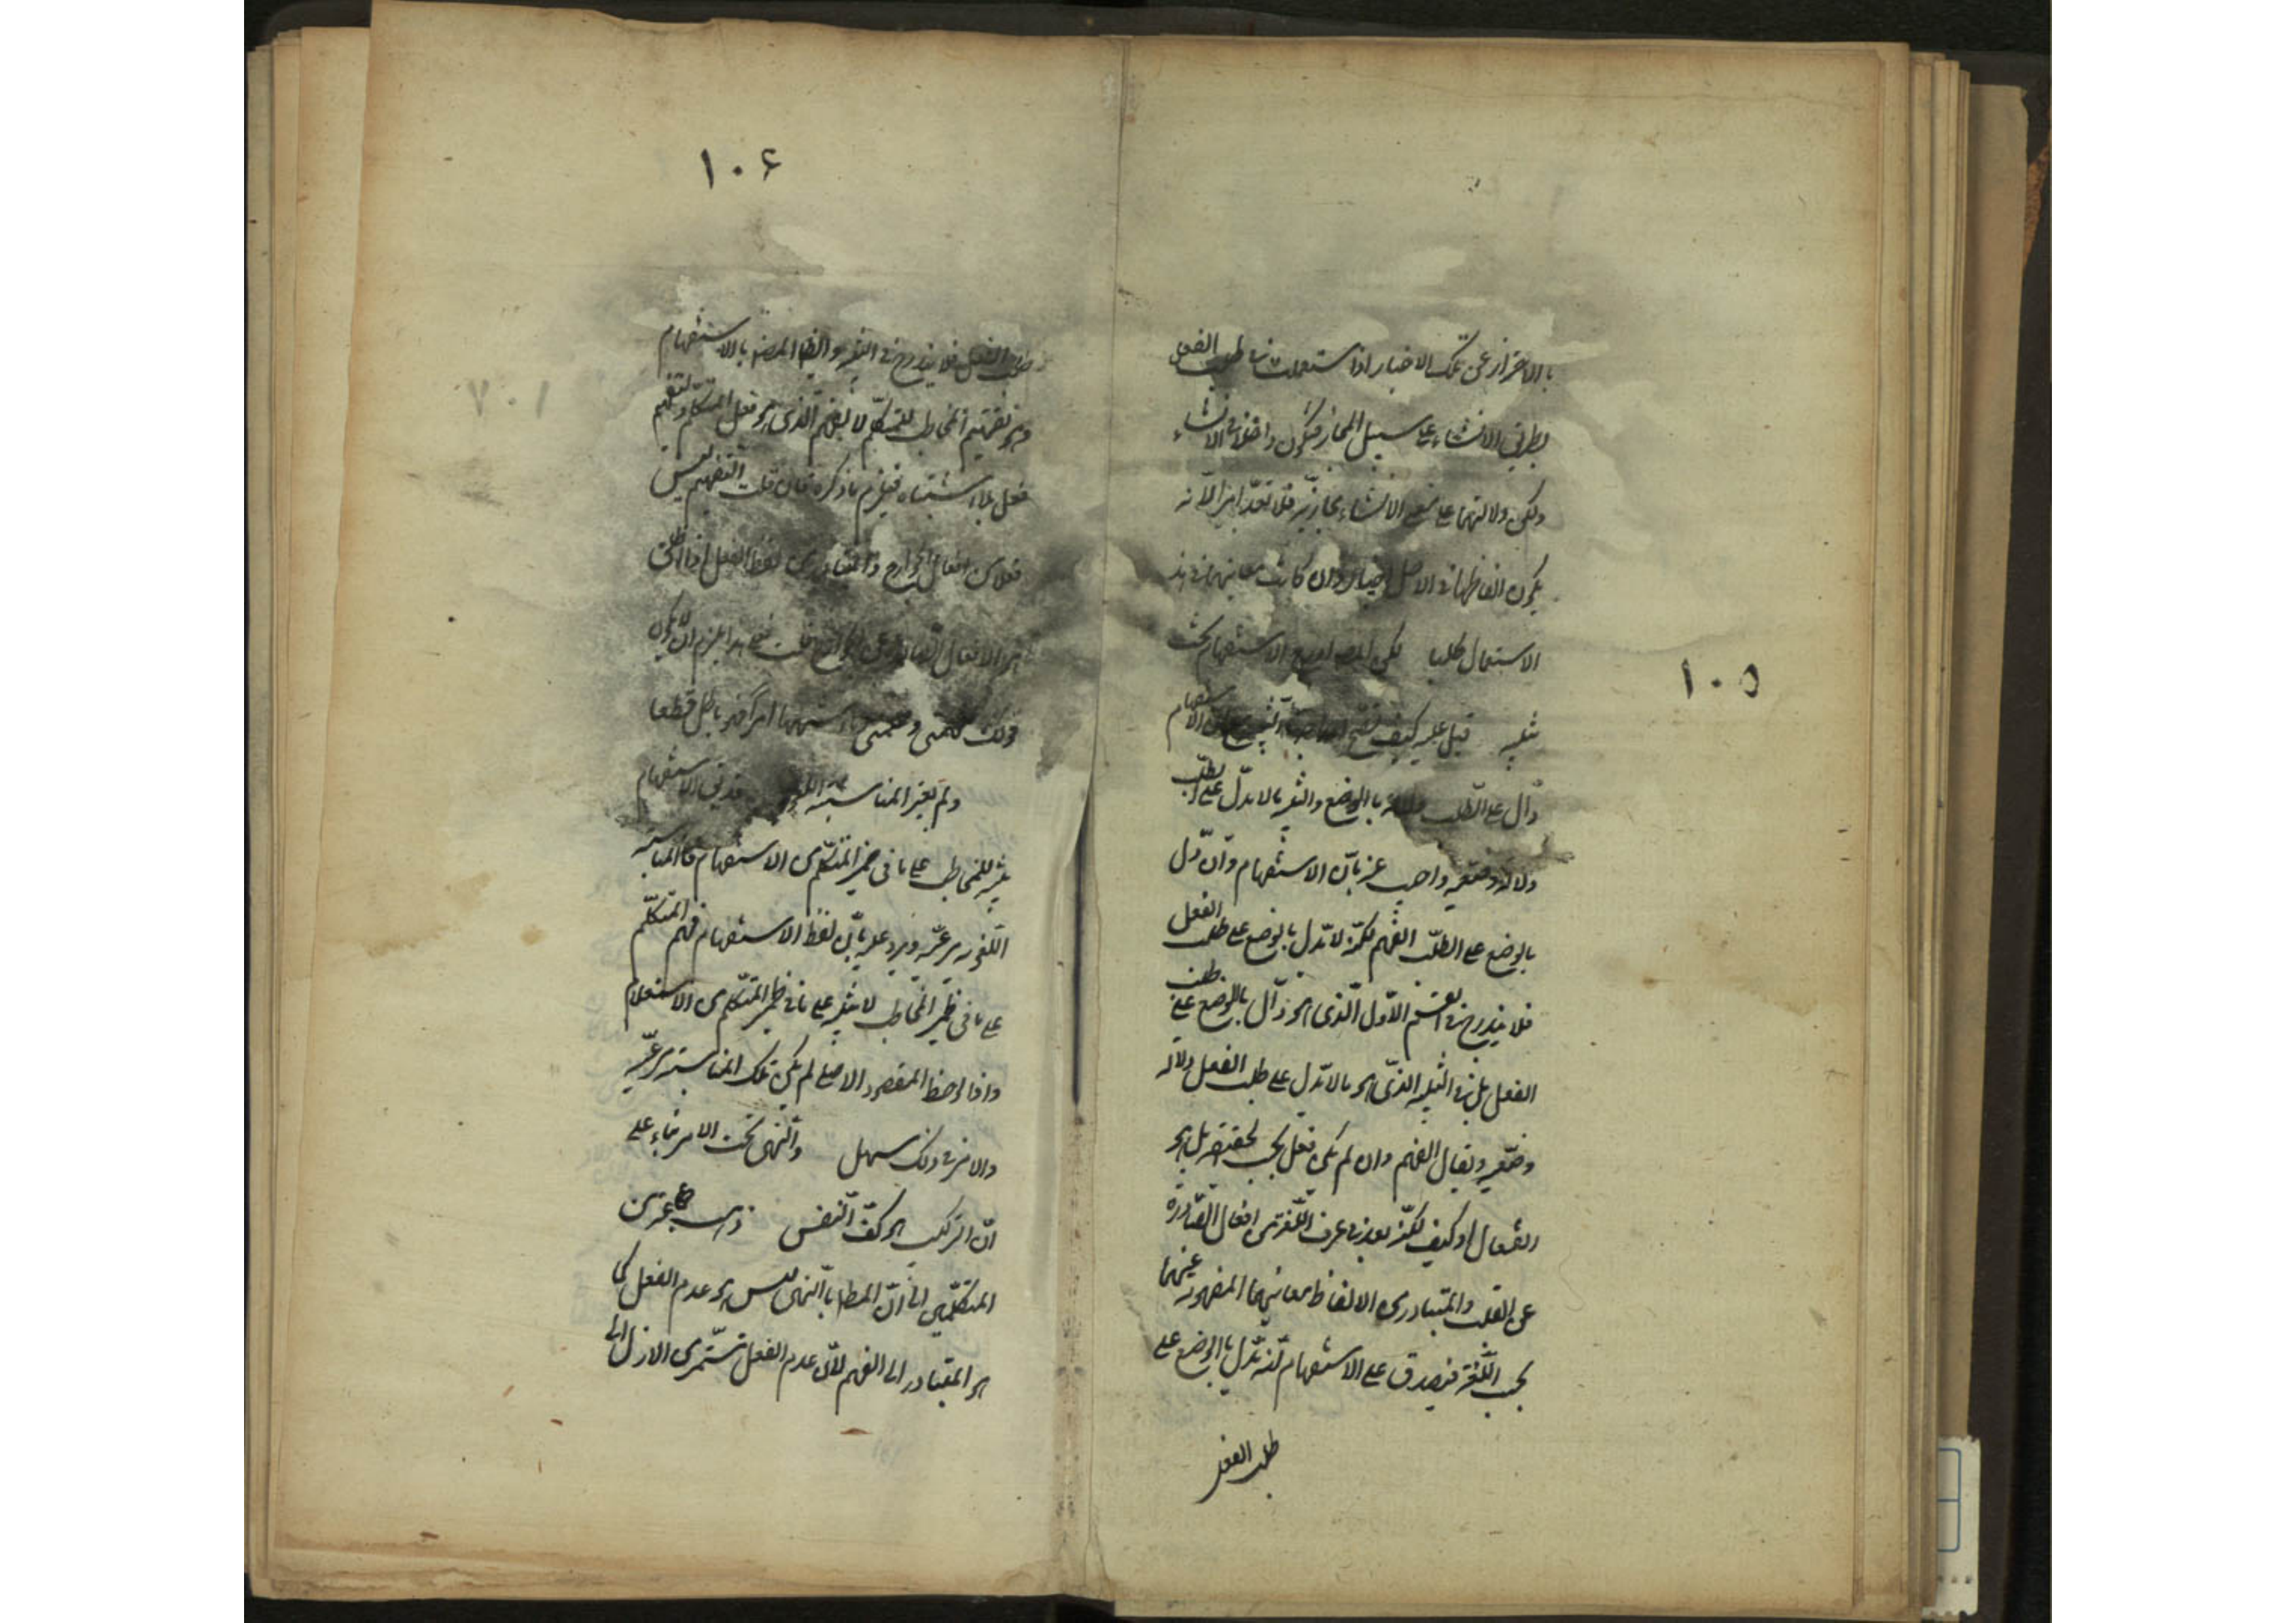 ۱۰۵
بالاحتراز عن تلك الاخبار اذا استعملت فى طلب الفعل
بطريق الانشاء على سبيل المجاز فتكون داخلة فى الانشاء
ولكن دلالتها على الانشاء مجازية فلا تعد امرا لانه
يكون الفاظها فى الاصل اخبارا وان كانت معانيها فى هذا
الاستعمال طلبا لكن المص ادرج الاستفهام تحت
تنبيه قيل عليه كيف الاستفهام
دال على الطلب دلالة بالوضع والتنبيه ما لا يدل على الطلب
دلالة وضعية واجيب عنه بان الاستفهام وان دل
بالوضع على الطلب الفهم لكنه لا يدل بالوضع على طلب الفعل
فلا يندرج فى القسم الاول الذى هو دال بالوضع على طلب
الفعل بل فى التنبيه الذى هو ما لا يدل على طلب الفعل دلالة
وضعية ويقال الفهم وان لم يكن فعل بحسب الحقيقة بل هو
انفعال او كيف لكنه يعد فى عرف اللغة من افعال الصادرة
عن القلب والمتبادر من الالفاظ معانيها المفهومة عنها
بحسب اللغة فيصدق على الاستفهام انه يدل بالوضع على
طلب الفعل
۱۰۶
طلب الفعل فلا يندرج فى التنبيه وايضا المط بالاستفهام
هو تفهيم المخاطب للمتكلم لا الفهم الذى هو فعل المتكلم والتفهيم
فعل بلا اشتباه فيلزم ما ذكره فان قلت التفهيم ليس
فعلا من افعال الجوارح والمتبادر من لفظ الفعل اذا اطلق
هو الافعال الصادرة عن الجوارح قلت فعلى هذا يلزم ان لا يكون
قولك فهمنى وعلمنى امرا وهو باطل قطعا
ولم يعتبر المناسبة اللغوية الاستفهام
تنبيه للمخاطب على ما فى ضمير المتكلم من الاستفهام فالمناسبة
اللغوية مرعية ويرد عليه بان لفظ الاستفهام فهم المتكلم
على ما فى ضمير المخاطب لا تنبيه على ما فى ضمير المتكلم من الاستعلام
واذا لوحظ المقصود الاصلى لم يكن تلك المناسبة مرعية
والامر فى ذلك سهل والنهى تحت الامر بناء على
ان الترك هو كف النفس ذهب جماعة من
المتكلمين الى ان المط بالنهى ليس هو عدم الفعل كما
هو المتبادر الى الفهم لان عدم الفعل مستمر من الازل الى